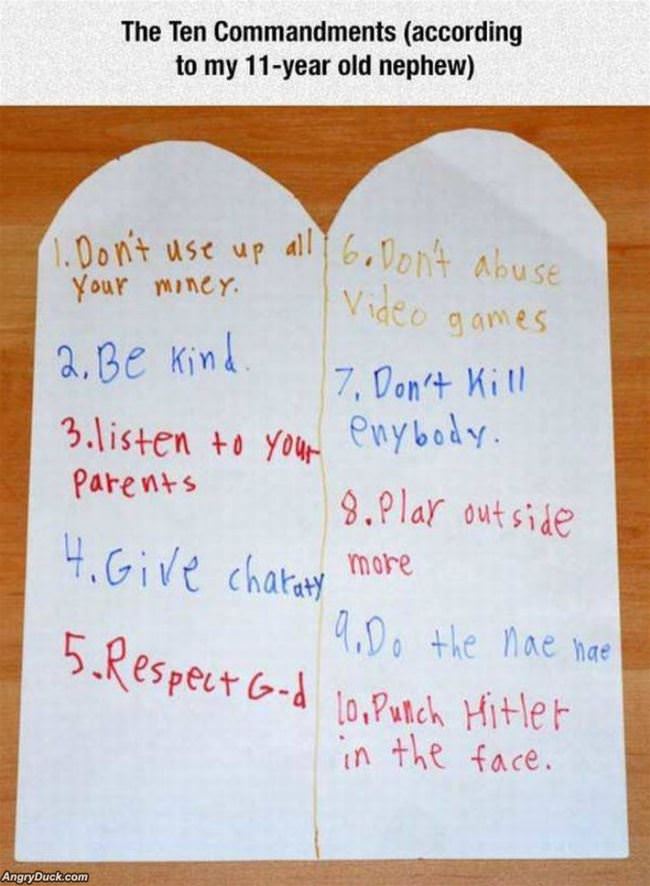 The Ten Commandments (according
to my 11-year old nephew)
1. Don't use up all
your money.
2. Be kind.
3. listen to your
Parents
4. Give charaty
5. Respect G-d
6. Don't abuse
Video games
7. Don't Kill
enybody.
8. Play outside
more
9. Do the nae nae
10. Punch Hitler
in the face.
AngryDuck.com